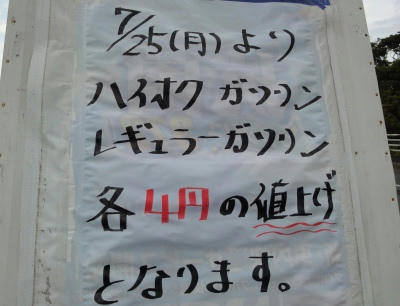 7/25(月)より
ハイオク ガソリン
レギュラーガソリン
各4円の値上げ
となります。